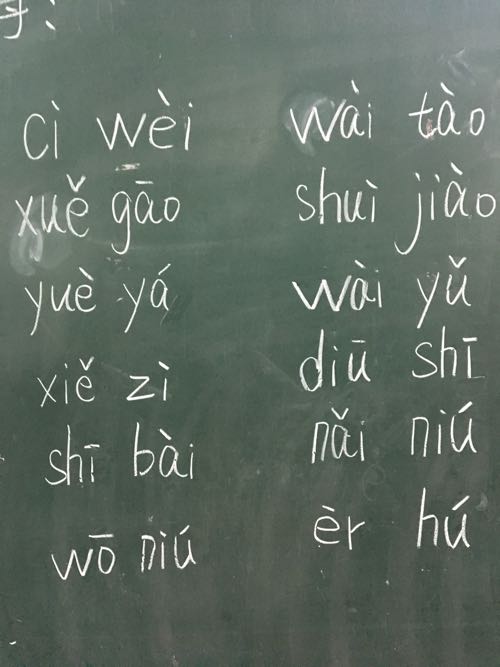 cì wèi wài tào
xuě gāo shuì jiào
yuè yá wài yǔ
xiě zì diū shī
shī bài nǎi niú
wō niú èr hú